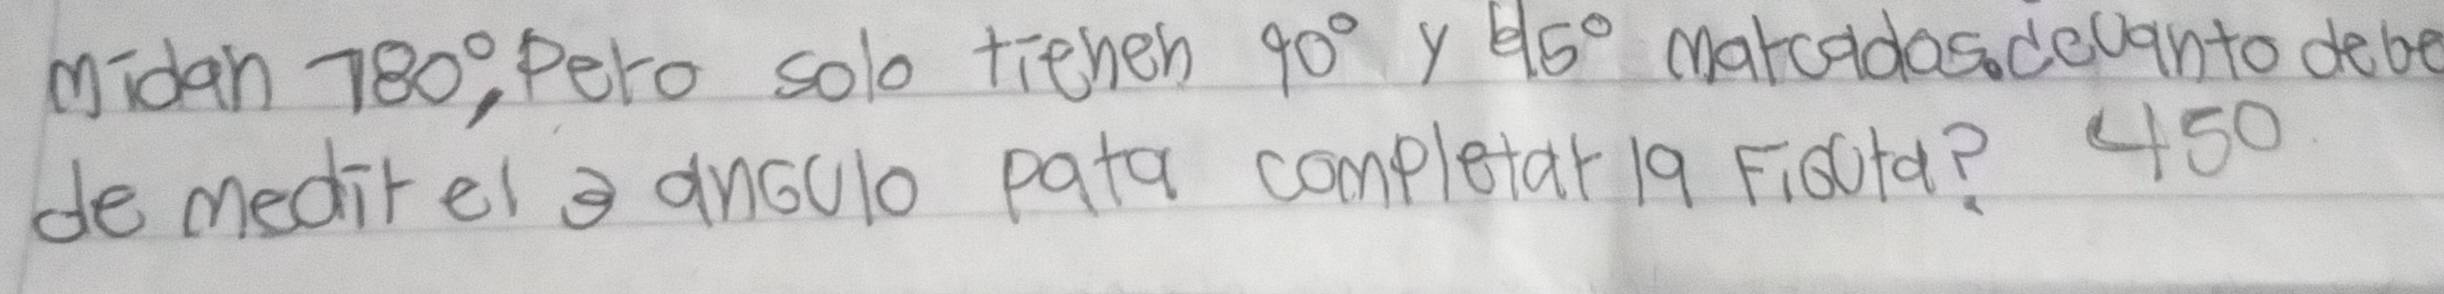 midan 180°, Pero solo tienen 90° y 45° marcadas. de cuanto debe
de medir el 3 angulo para completar la Figura? 450